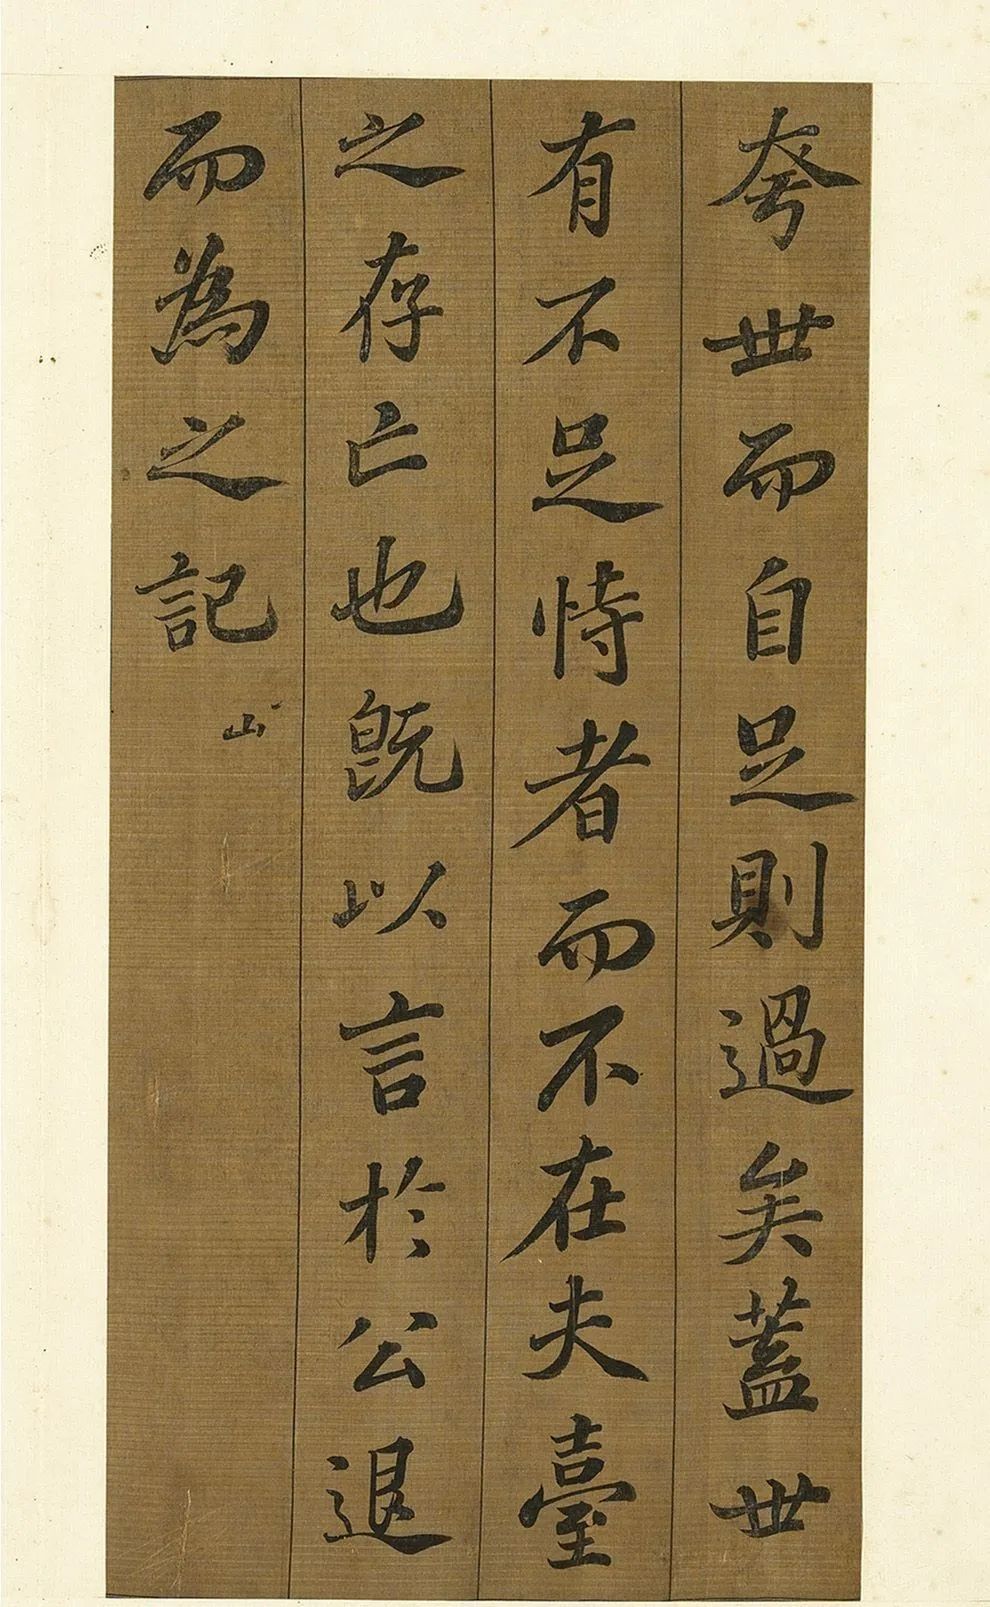 夸世而自足則過矣蓋世
有不足恃者而不在夫臺
之存亡也旣以言於公退
而為之記
山